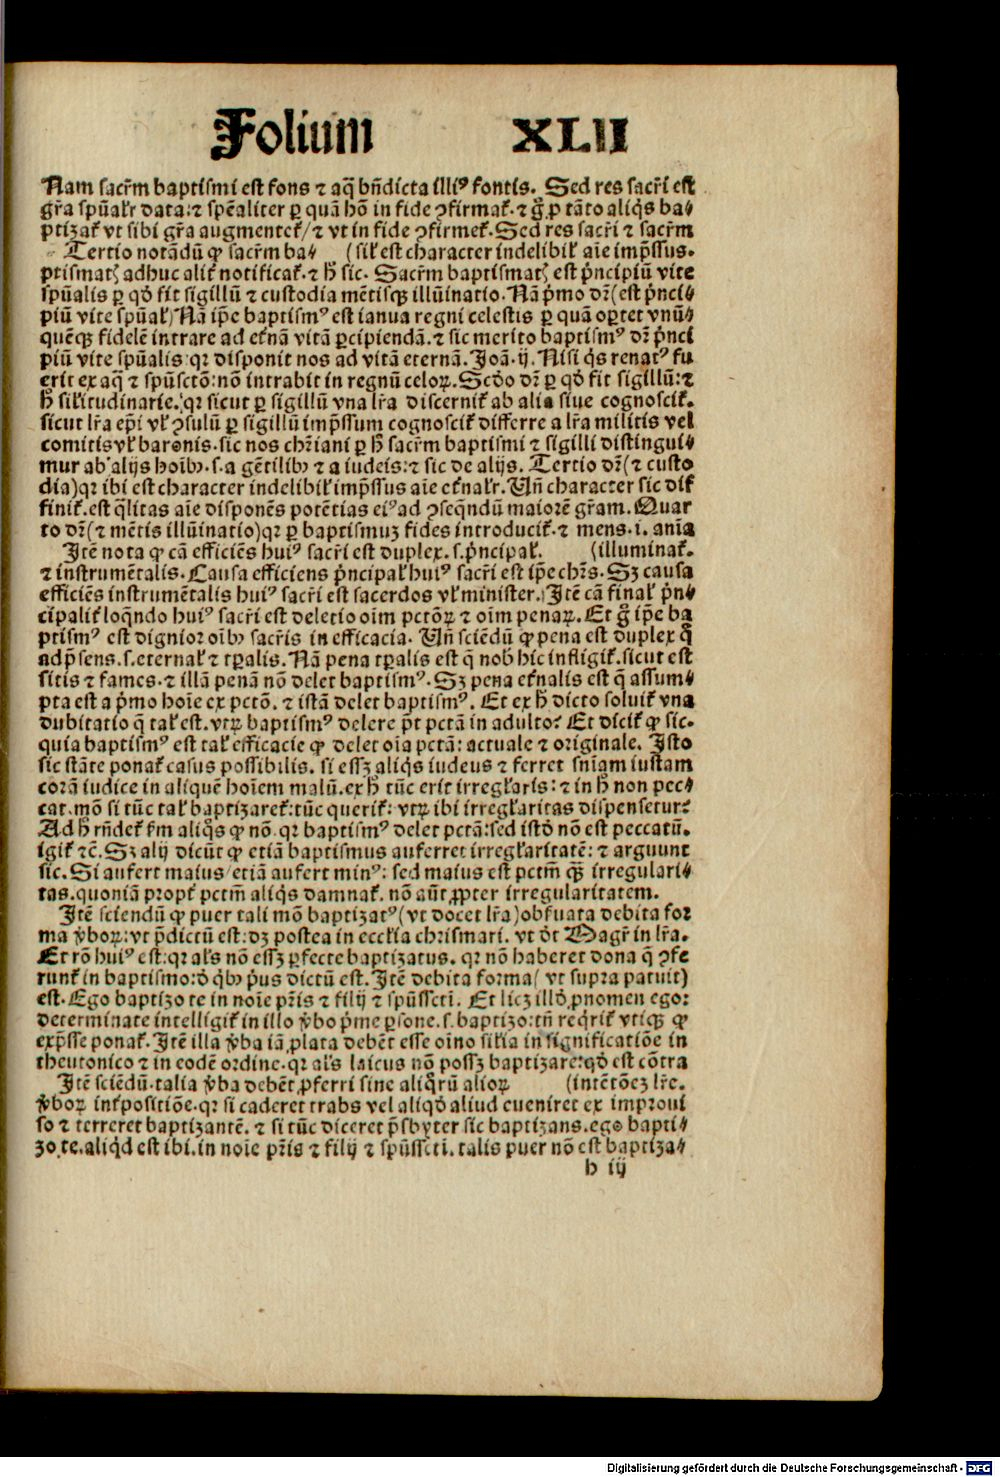 Folium XLII
Nam sacr̄m baptismi est fons ⁊ aq̄ bn̄dicta illiꝰ fontis. Sed res sacr̄i est
gr̄a spūalr̄ data:⁊ spēaliter ꝑ quā hō in fide ꝯfirmat᷑.⁊ g̊ ꝓ tāto aliq̇s ba⸗
ptizat᷑ vt sibi gr̄a augmentet᷑/⁊ vt in fide ꝯfirmet᷑. Sed res sacr̄i ⁊ sacr̄m
Tertio notādū ꝙ sacr̄m ba⸗ (sil̓ est character indelibil̓ aīe imp̄ssus.
ptismatꝭ adhuc alit᷑ notificat᷑.⁊ h̄ sic. Sacr̄m baptismatꝭ est p̓ncipiū vite
spūalis ꝑ qḋ fit sigillū ⁊ custodia mētisqꝫ illūinatio. Nā p̓mo dr̄ (est p̓nci⸗
piū vite spūal̓) Nā ip̄e baptismꝰ est ianua regni celestis ꝑ quā oꝑtet vnū⸗
quēqꝫ fidelē intrare ad et᷑nā vitā ꝑcipiendā.⁊ sic merito baptismꝰ dr̄ p̓nci
piū vite spūalis:qꝛ disponit nos ad vitā eternā. Joā.ij. Nisi q̇s renatꝰ fu
erit ex aq̄ ⁊ spūsctō:nō intrabit in regnū celoꝝ. Scḋo dr̄ ꝑ qḋ fit sigillū:⁊
h̄ silitudinarie. qꝛ sicut ꝑ sigillū vna lr̄a discernit᷑ ab alia siue cognoscit᷑.
sicut lr̄a ep̄i vl̓ ꝯsulū ꝑ sigillū imp̄ssum cognoscit᷑ differre a lr̄a militis vel
comitis vl̓ baronis. sic nos chr̄iani ꝑ h̄ sacr̄m baptismi ⁊ sigilli distingui⸗
mur ab alijs hoībꝫ.s.a gētilibꝫ ⁊ a iudeis:⁊ sic de alijs. Tertio dr̄ (⁊ custo
dia) qꝛ ibi est character indelibil̓ imp̄ssus aīe et᷑nalr̄. Vn̄ character sic dif
finit᷑.est q̄litas aīe disponēs potētias eiꝰ ad ꝯseq̄ndū maiorē gr̄am. Quar
to dr̄ (⁊ mētis illūinatio) qꝛ ꝑ baptismuꝫ fides introducit᷑.⁊ mens.i.anīa
Jtē nota ꝙ cā efficiēs huiꝰ sacr̄i est duplex.s.p̓ncipal̓. (illuminat᷑.
⁊ instrumētalis. Causa efficiens p̓ncipal̓ huiꝰ sacr̄i est ip̄e chr̄s. Sꝫ causa
efficiēs instrumētalis huiꝰ sacr̄i est sacerdos vl̓ minister. Jtē cā final̓ p̓n⸗
cipalit᷑ loq̄ndo huiꝰ sacr̄i est deletio oīm pctōꝝ ⁊ oīm penaꝝ. Et g̊ ip̄e ba
ptismꝰ est dignior oībꝫ sacr̄is in efficacia. Vn̄ sciēdū ꝙ pena est duplex q̄
ad p̄sens.s.eternal̓ ⁊ tꝑalis. Nā pena tꝑalis est q̄ nob̄ hic infligit᷑.sicut est
sitis ⁊ fames.⁊ illā penā nō delet baptismꝰ. Sꝫ pena et᷑nalis est q̄ assum⸗
pta est a p̓mo hoīe ex pctō.⁊ istā delet baptismꝰ. Et ex h̄ dicto soluit᷑ vna
dubitatio q̄ tal̓ est. vtꝝ baptismꝰ delere p̄t pctā in adulto? Et dicit᷑ ꝙ sic.
quia baptismꝰ est tal̓ efficacie ꝙ delet oīa pctā: actuale ⁊ originale. Jsto
sic stāte ponat᷑ casus possibilis. si essꝫ aliq̇s iudeus ⁊ ferret sn̄iam iustam
corā iudice in aliquē hoīem malū.ex h̄ tūc erit irregl̓aris:⁊ in h̄ non pec⸗
cat.mō si tūc tal̓ baptizaret᷑:tūc querit᷑: vtꝝ ibi irregl̓aritas dispensetur?
Ad h̄ rn̄det᷑ ẜm aliq̇s ꝙ nō.qꝛ baptismꝰ delet pctā:sed istḋ nō est peccatū.
igit᷑ ⁊c̄. Sꝫ alij dicūt ꝙ etiā baptismus auferret irregl̓aritatē:⁊ arguunt
sic. Si aufert maius/etiā aufert minꝰ: sed maius est pctm̄ qꝫ irregulari⸗
tas.quoniā propt᷑ pctm̄ aliq̇s damnat᷑. nō aūt ꝓpter irregularitatem.
Jtē sciendū ꝙ puer tali mō baptizatꝰ (vt docet lr̄a) obẜuata debita for
ma v̓boꝝ:vt p̄dictū est:dꝫ postea in eccl̓ia chrismari. vt dr̄ Magr̄ in lr̄a.
Et rō huiꝰ est:qꝛ al̓s nō essꝫ ꝑfecte baptizatus. qꝛ nō haberet dona q̄ ꝯfe
runt᷑ in baptismo:ḋ q̇bꝫ p̓us dictū est. Jtē debita forma (vt supra patuit)
est. Ego baptizo te in noīe pr̄is ⁊ filij ⁊ spūsscti. Et licꝫ illḋ ꝓnomen ego:
determinate intelligit᷑ in illo v̓bo p̓me ꝑsone.s.baptizo:tn̄ req̇rit᷑ vtiqꝫ ꝙ
exp̄sse ponat᷑. Jtē illa v̓ba iā ꝓlata debēt esse oīno sil̓ia in significatiōe in
theutonico ⁊ in eodē ordine.qꝛ al̓s laicus nō possꝫ baptizare:qḋ est cōtra
Jtē sciēdū.talia v̓ba debēt ꝓferri sine aliq̄rū alioꝝ (intētōeꝫ lr̄e.
v̓boꝝ int᷑positiōe.qꝛ si caderet trabs vel aliqḋ aliud eueniret ex improui
so ⁊ terreret baptizantē.⁊ si tūc diceret p̄sbyter sic baptizans.ego bapti⸗
zo te.aliq̇d est ibi.in noīe pr̄is ⁊ filij ⁊ spūsscti. talis puer nō est baptiza⸗
h iij
Digitalisierung gefördert durch die Deutsche Forschungsgemeinschaft - DFG